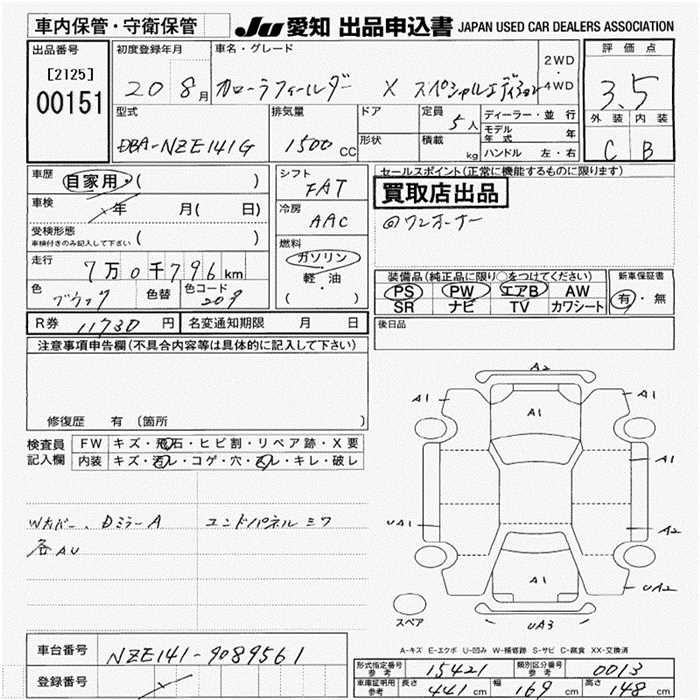 車内保管・守衛保管 JU 愛知 出品申込書 JAPAN USED CAR DEALERS ASSOCIATION
出品番号 初度登録年月 車名・グレード 2WD ・ 4WD 評価点
[2125] 00151 20 8月 カローラフィールダー X スペシャルエディション 3.5
型式 排気量 ドア 定員 5人 ディーラー・並行 外装 内装
DBA-NZE141G 1500cc 形状 積載 kg モデル年式 年 C B
ハンドル 左・右
車歴 自家用・( ) シフト FAT セールスポイント(正常に機能するものに限ります)
車検 年 月( 日) 冷房 AAC 買取店出品
受検形態 ( ) ◎ワンオーナー
車検付きのみ記入して下さい
走行 7万0千796km 燃料 ガソリン 軽・油 ( ・ )
色 ブラック 色替 色コード 209
装備品(純正品に限り○をつけてください) 新車保証書
PS PW エアB AW 有・無
SR ナビ TV カワシート
R券 11730 円 名変通知期限 月 日 後日品
注意事項申告欄(不具合内容等は具体的に記入して下さい)
修復歴 有 〔箇所 〕
検査員記入欄 FW キズ・飛石・ヒビ割・リペア跡・X要
内装 キズ・汚レ・コゲ・穴・スレ・キレ・破レ
Wカバー、DミラーA エンドパネルミワ
各AU
A2
A1 A1 A1
A1
UA1 A2
A1 UA2
UA3
スペア
A-キズ E-エクボ U-凹み W-補修跡 S-サビ C-腐食 XX-交換済
車台番号 NZE141-9089561
登録番号
形式指定番号 参考 15421 類別区分番号 参考 0013
車庫証明用 参考 長さ 441cm 幅 169cm 高さ 148cm